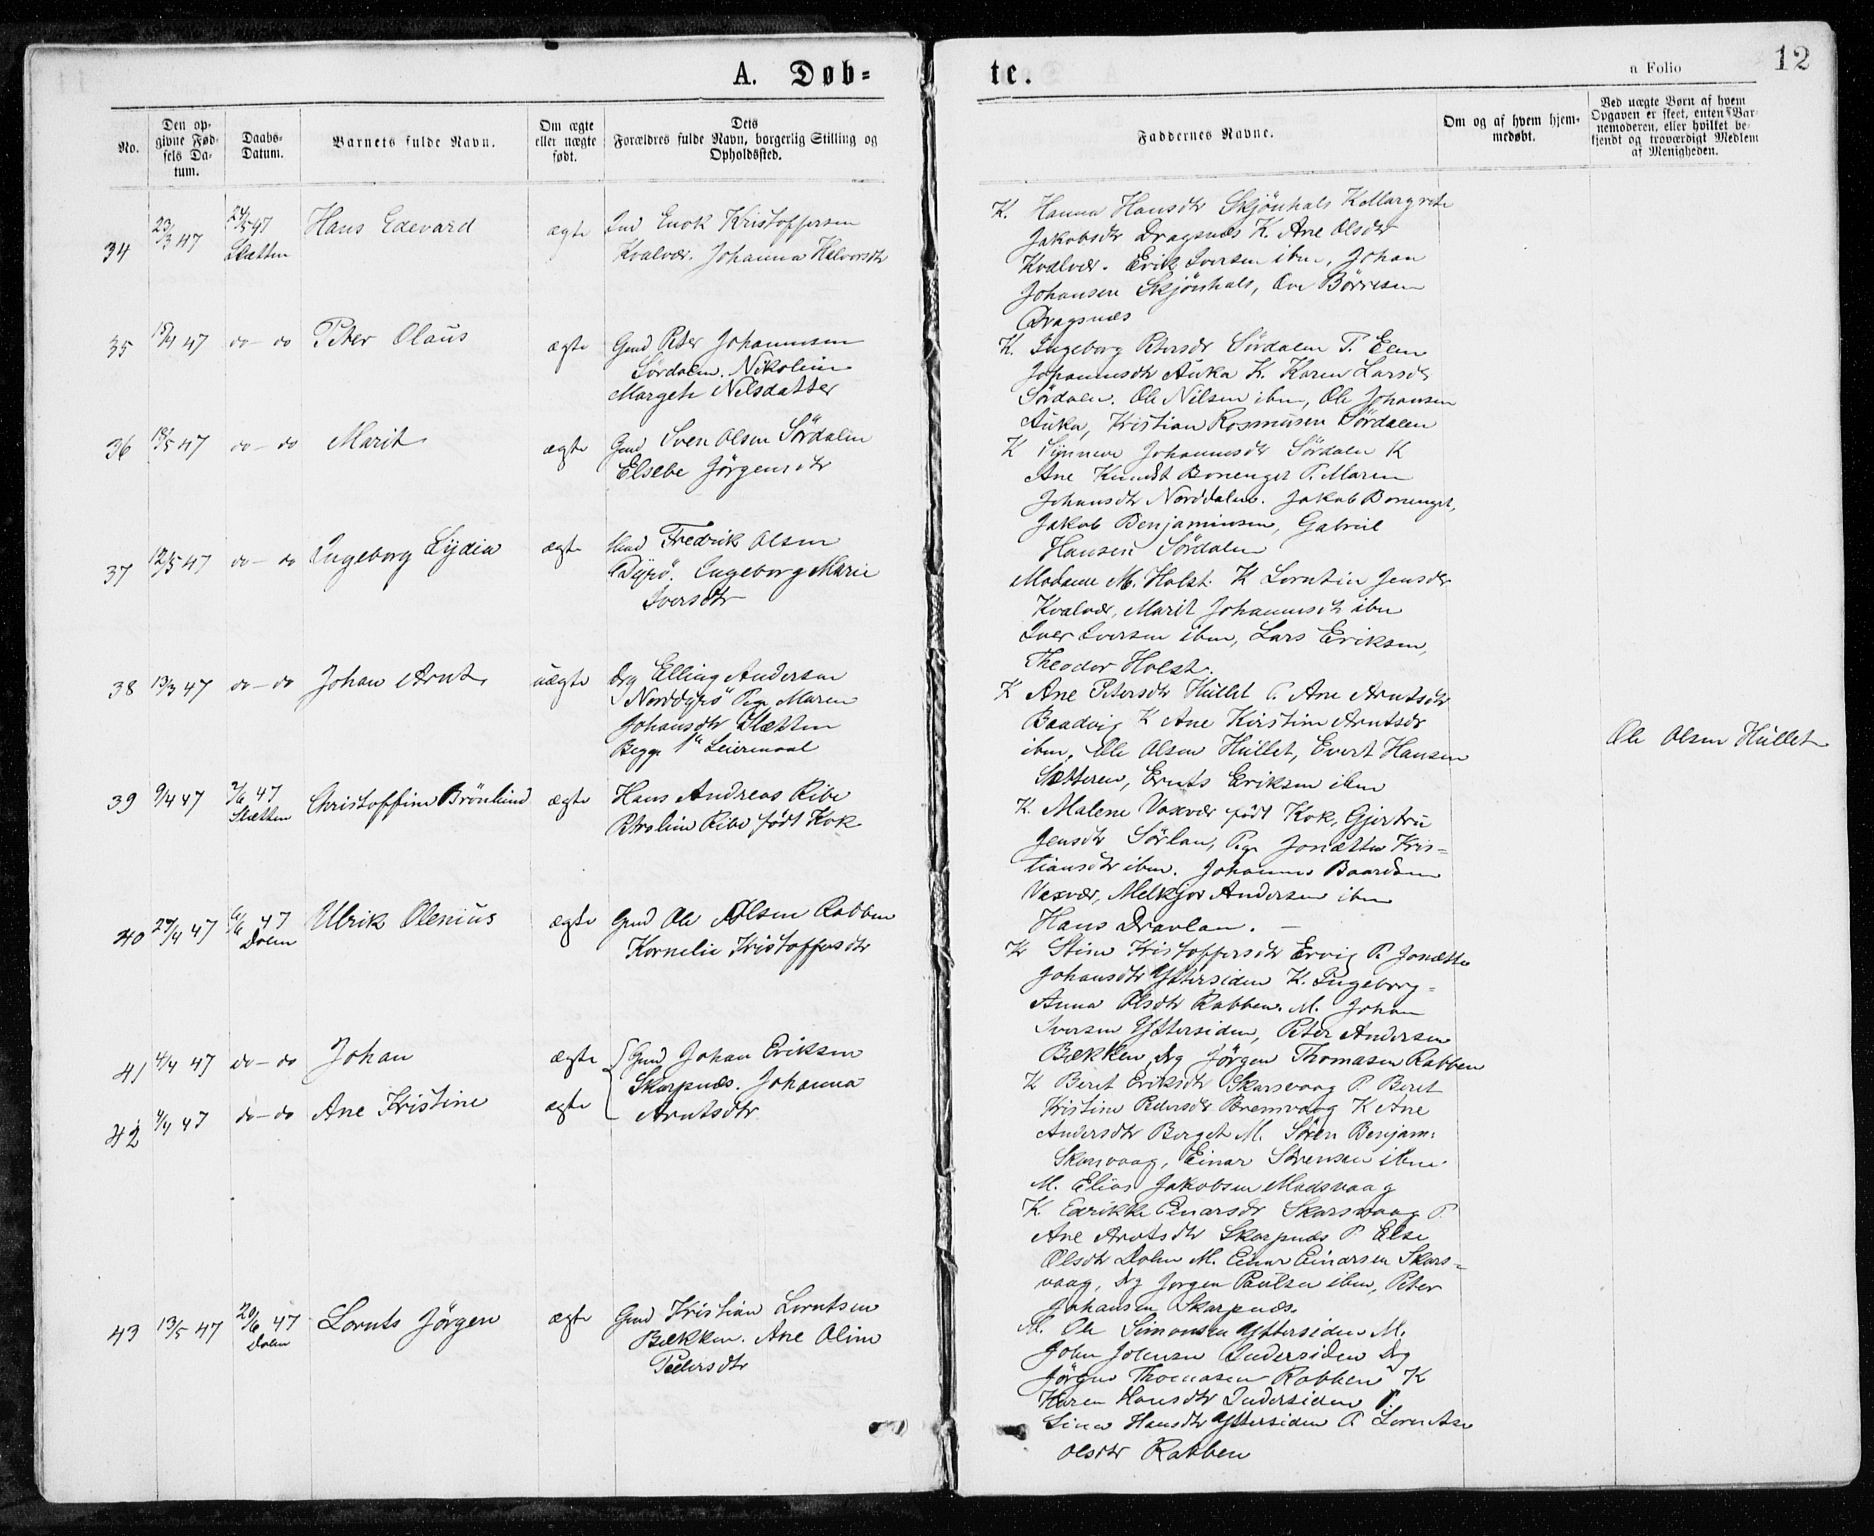 A. Døb=
te.
a Folio
12
No.
Den op-
givne Fød-
sels Da-
tum.
Daabs-
Datum.
Barnets fulde Navn.
Om ægte
eller uægte
født.
Dets
Forældres fulde Navn, borgerlig Stilling og
Opholdssted.
Faddernes Navne.
Om og af hvem hjem-
medøbt.
Ved uægte Børn af hvem
Opgaven er skeet, enten Bar-
nemoderen, eller hvilket be-
kjendt og troværdigt Medlem
af Menigheden.
34
23/3 47
24/5 47
Slætten
Hans Edevard
ægte
Ind Enok Kristoffersen
Kvalvær. Johanna Halvorsdtr
K. Hanna Hansdtr Skjönhals K Margrete
Jakobsdr Dragsnæs K. Ane Olsdtr
Kvalvær. Erik Iversen ibm, Johan
Johansen Skjönhals, Ove Börresen
Dragsnæs
35
47
do - do
Peter Olaus
ægte
Gmd Peter Johannesen
Sördalen. Nikoline
Margete Nilsdatter
K. Ingeborg Petersdr Sördalen P. Elen
Johannesdtr Auka K. Karen Larsdr
Sördalen. Ole Nilsen ibm, Ole Johansen
Auka, Kristian Rasmusen Sördalen
36
/5 47
do - do
Marit
ægte
Gmd Sven Olsen Sördalen
Elsebe Jörgensdtr
K Synneve Johannesdr Sördalen K
Ane Knudst Bonenget P. Maren
Johansdtr Norddalen. Jakob Bonenget,
Jakob Benjaminsen, Gabriel
Hansen Sördalen
37
12/5 47
do - do
Ingeborg Lydia
ægte
Fredrik Olsen
Dyrö. Ingeborg Marie
Iversdtr
Madame M. Holst. K Lorntin Jensdr
Kvalvær, Marit Johannesdt ibm
Iver Iversen ibm, Lars Eriksen,
Theodor Holst.
38
13/3 47
do - do
Johan Arnt
uægte
Drg Elling Andersen
Norddyrö Pige Maren
Johansdtr Slætten
Begges 1ste Leiermaal
K Ane Petersdtr Hullet P. Ane Arntsdtr
Baadvig K Ane Kirstine Arntsdr
ibm, Ole Olsen Hullet, Evert Hansen
Sætteren, Ernts Eriksen ibm
Ole Olsen Hullet
39
9/4 47
2/6 47
Slætten
Christoffine Brönlund
ægte
Hans Andreas Ribe
Petroline Ribe födt Kok
K. Malene Vaxvær födt Kok, Gjertru
Jensdtr Sörlan, Pige Jonætta Kris-
tiansdtr ibm. Johannes Baardsen
Vaxvær, Melkjor Andersen ibm
Hans Dravlan. -
40
27/4 47
6/6 47
Dolm
Ulrik Olenius
ægte
Gmd Ole Olsen Rabben
Kornelie Kristoffersdtr
K Stine Kristoffersdtr Ervig P. Jonætte
Johansdtr Yttersiden K. Ingeborg-
Anna Olsdtr Rabben. M. Johan
Iversen Yttersiden, Peter Andersen
Bækken, Drg Jörgen Thomasen Rabben
41
4/4 47
do - do
Johan
ægte
Gmd Johan Eriksen
Skarpnæs. Johanna
Arntsdtr
K Beret Eriksdtr Skarsvaag P. Beret
Kristine Petersdr Bremvaag K Ane
Andersdtr Berget M. Sören Benjam:
Skarsvaag, Einar Sörensen ibm.
M. Elias Jakobsen Madsvaag
42
4/4 47
do - do
Ane Kristine
ægte
K. Edrikke Einarsdr Skarsvaag P.
Ane Arntsdtr Skarpnæs P Else
Olsdtr Dolm M. Einar Einarsen Skars-
vaag, Drg Jörgen Paulsen ibm, Peter
Johansen Skarpnæs.
43
13/5 47
20/6 47
Dolm
Lornts Jörgen
ægte
Gmd Kristian Lorntsen
Bækken. Ane Oline
Pedersdtr
M. Ole Simonsen Yttersiden M.
John Johnsen Indersiden Drg
Jörgen Thomasen Rabben K
Karen Hansdtr Indersiden P.
Lina Hansdtr Yttersiden P. Lorntse
Olsdtr Rabben